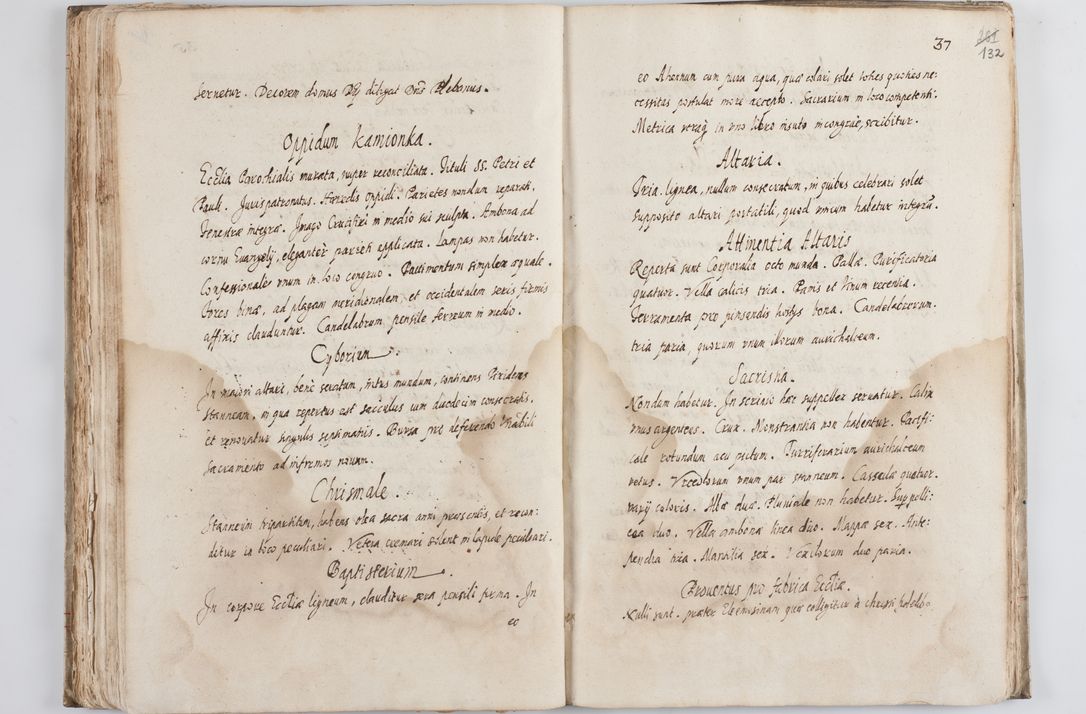 sernetur. Decorem domus Dei diligat Dnus Plebanus.
Oppidum Kamionka.
Ecclia Parochialis murata, nuper reconciliata. Tituli SS. Petri et
Pauli. Jurispatronatus. Hæredis Oppidi. Parietes nondum reparati.
Fenestræ integræ. Imago Crucifixi in medio sui sculpta. Ambona ad
cornu Euangelij, eleganter parieti applicata. Lampas non habetur.
Confessionale vnum in loco congruo. Pauimentum simplex æquale.
Fores binæ, ad plagam meridionalem, et occidentalem seris firmis
affixis clauduntur. Candelabrum pensile ferreum in medio.
Cyborium.
In maiori altari, bene seratum, intus mundum, continens Pixidem
stanneam, in qua repertus est sacculus cum duodecim consecratis.
et renouatur singulis septimanis. Bursa pro deferendo Venerabili
Sacramento ad infirmos nouum.
Chrismale.
Stanneum tripartitum, habens olea sacra anni præsentis, et recon:
ditur in loco peculiari. Vetera cremari solent in lapide peculiari.
Baptisterium.
In corpore Eccliæ ligneum, clauditur sera pensili firma. In
eo
37
132
eo Ahænum cum pura aqua, quæ colari solet toties quoties ne:
cessitas postulat more accepto. Sacrarium in loco competenti.
Metrica in vno libro insuto incongruè, scribitur.
Altaria.
Tria. lignea, nullum consecratum, in quibus celebrari solet
supposito altari portatili, quod vnicum habetur integrum.
Attinentia Altaris
Reperta sunt Corporalia octo munda. Pallæ. Purificatoria
quatuor. Vella calicis tria. Panis et Vinum recentia.
Ferramenta pro pinsendis hostijs bona. Candelabrorum.
tria paria, quorum vnum illorum aurichalceum.
Sacristia.
Nondum habetur. In scrinio hæc suppellex seruatur. Calix
vnus argenteus. Crux. Monstrantia non habentur. Pacifi:
cale rotundum acu pictum. Turriferarium aurichalceum
vetus. Vrceolorum vnum par stanneum. Casseulæ quatuor.
varij coloris. Albæ duæ. Pluuiale non habetur. Suppelli:
cea duo. Vella ambonæ linea duo. Mappæ sex. Ante:
pendia tria. Mantilia sex. Vexillorum duo paria.
Prouentus pro fabrica Eccliæ.
Nulli sunt. præter Elemosinam quæ colligitur à christi fidelibus.